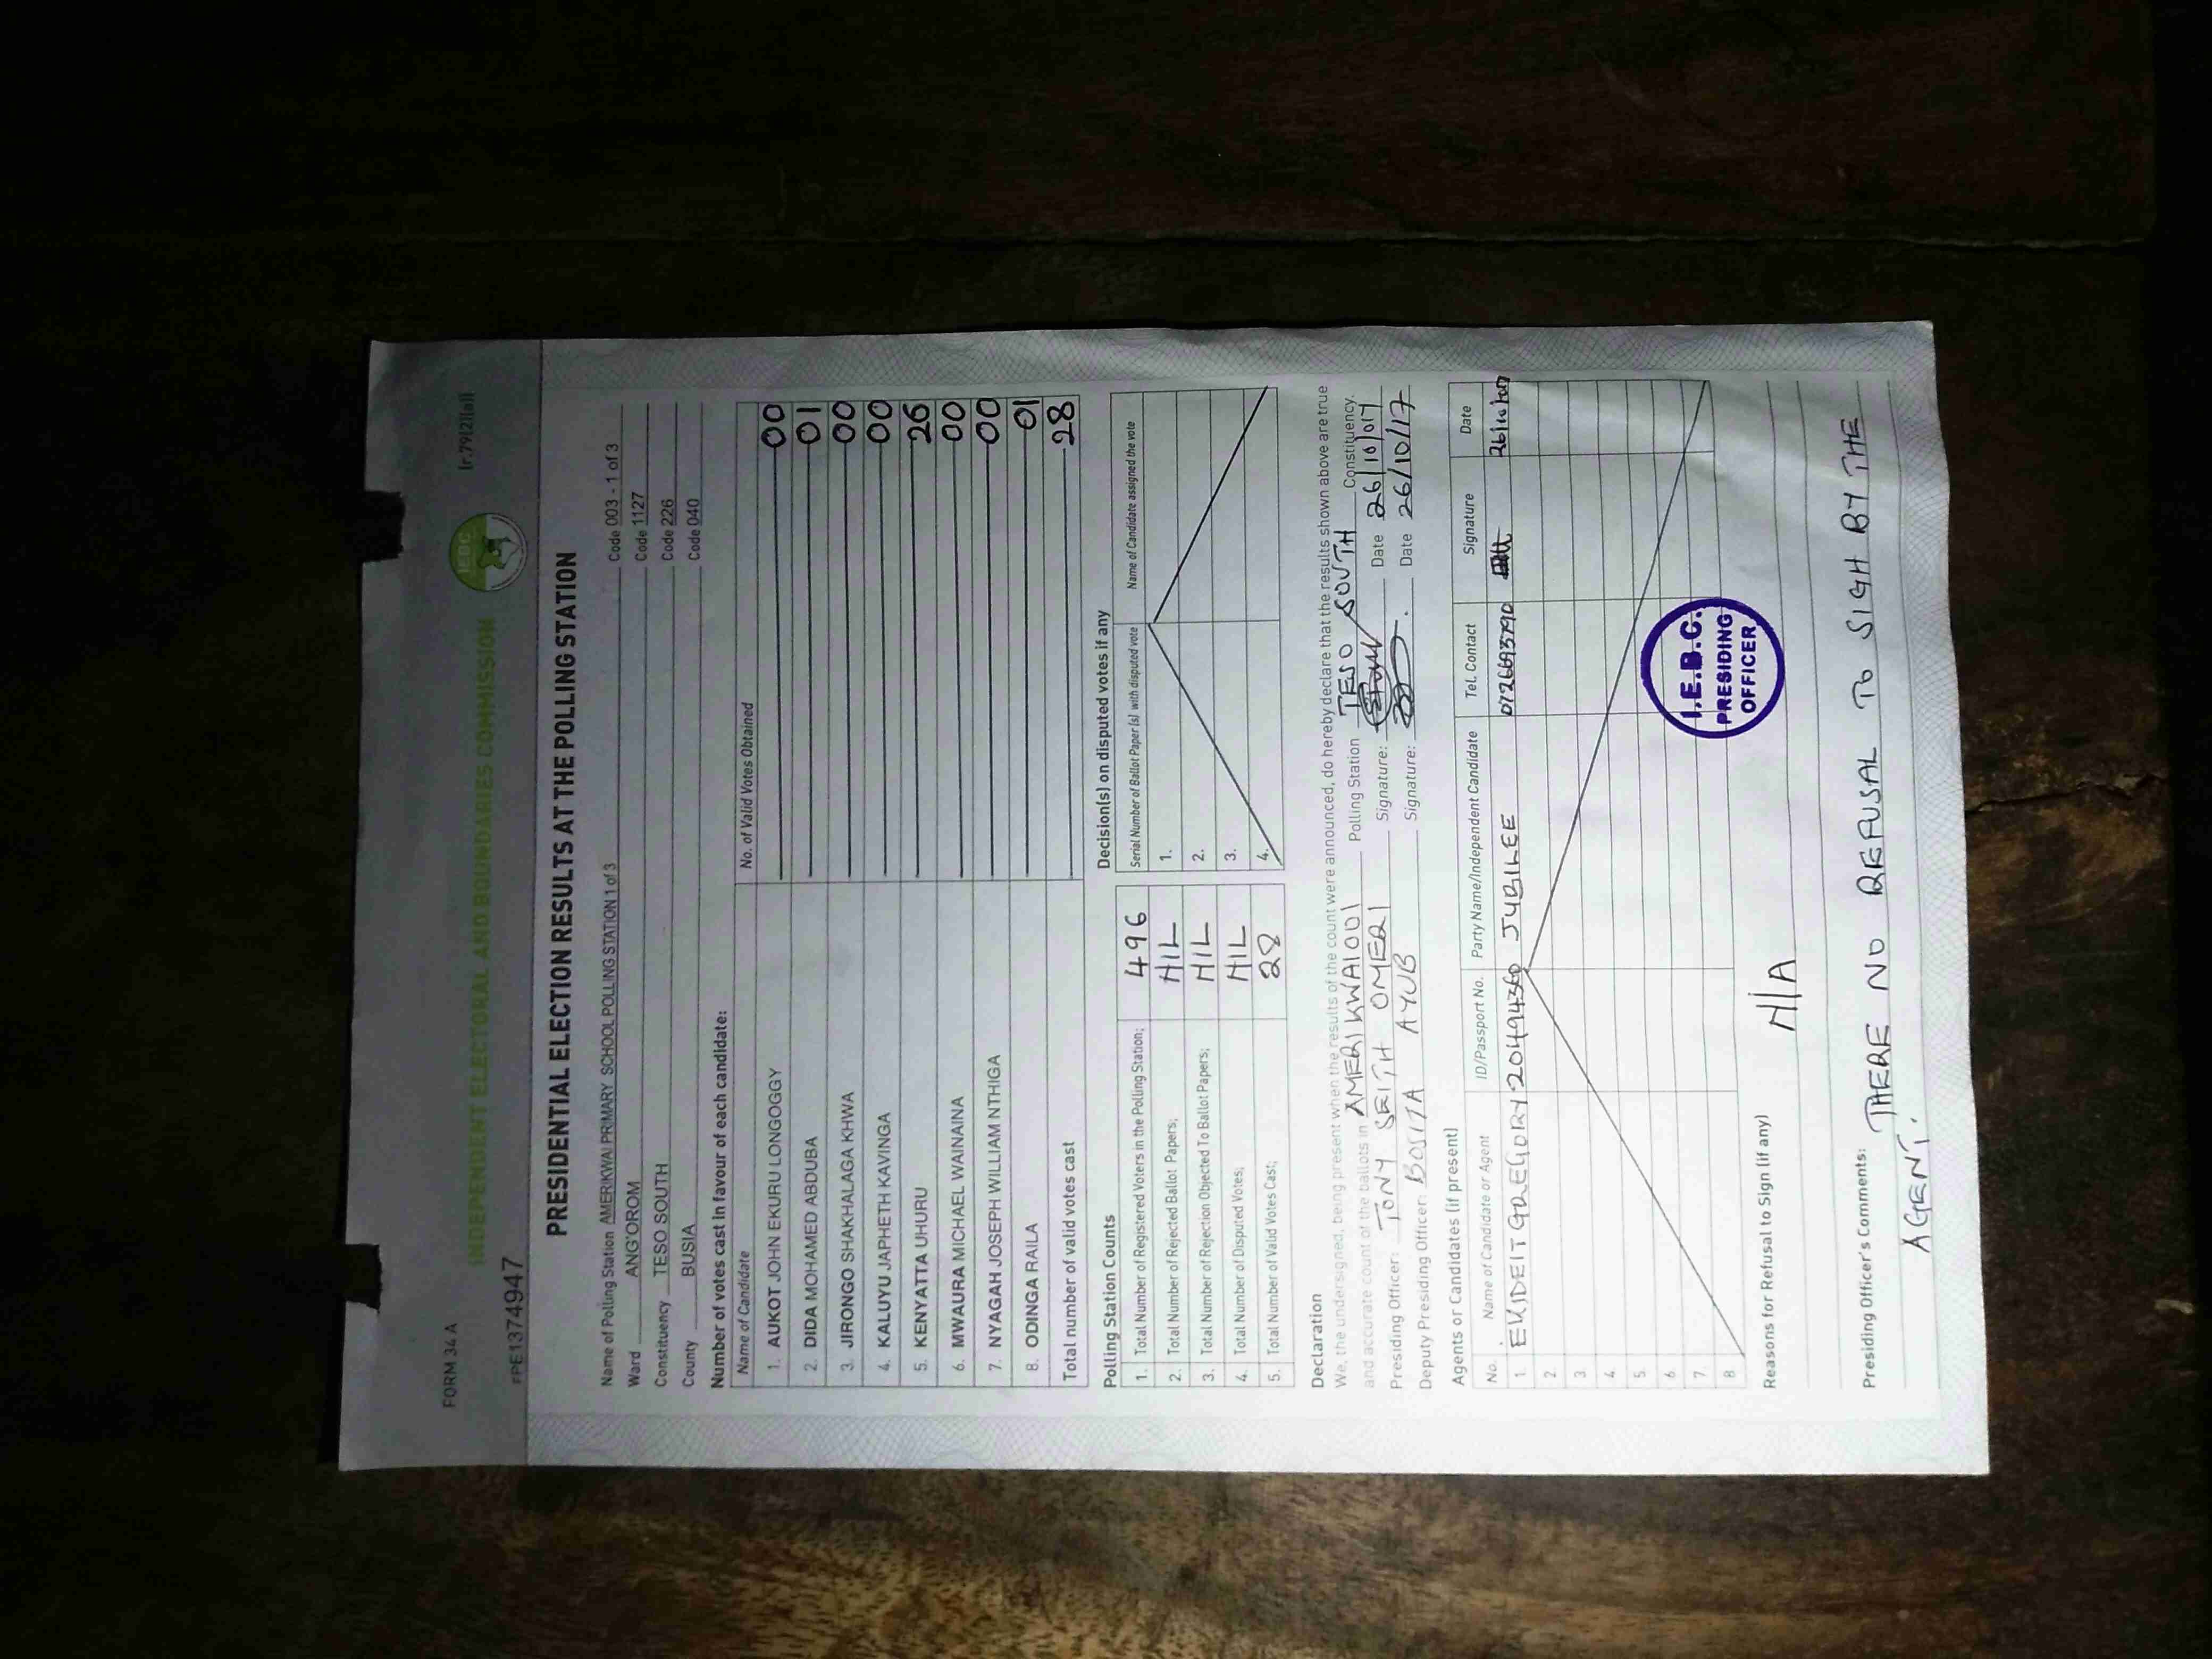 FORM 34 A
(r.79(2)(a))
INDEPENDENT ELECTORAL AND BOUNDARIES COMMISSION
IEBC
FPE1374947
PRESIDENTIAL ELECTION RESULTS AT THE POLLING STATION
Name of Polling Station AMERIKWAI PRIMARY SCHOOL POLLING STATION 1 of 3 Code 003 - 1 of 3
Ward ANG'OROM Code 1127
Constituency TESO SOUTH Code 226
County BUSIA Code 040
Number of votes cast in favour of each candidate:
Name of Candidate No. of Valid Votes Obtained
1. AUKOT JOHN EKURU LONGOGGY 00
2. DIDA MOHAMED ABDUBA 01
3. JIRONGO SHAKHALAGA KHWA 00
4. KALUYU JAPHETH KAVINGA 00
5. KENYATTA UHURU 26
6. MWAURA MICHAEL WAINAINA 00
7. NYAGAH JOSEPH WILLIAM NTHIGA 00
8. ODINGA RAILA 01
Total number of valid votes cast 28
Polling Station Counts
1. Total Number of Registered Voters in the Polling Station; 496
2. Total Number of Rejected Ballot Papers; NIL
3. Total Number of Rejection Objected To Ballot Papers; NIL
4. Total Number of Disputed Votes; NIL
5. Total Number of Valid Votes Cast; 28
Decision(s) on disputed votes if any
Serial Number of Ballot Paper (s) with disputed vote Name of Candidate assigned the vote
1.
2.
3.
4.
Declaration
We, the undersigned, being present when the results of the count were announced, do hereby declare that the results shown above are true
and accurate count of the ballots in AMERIKWAI 001 Polling Station TESO SOUTH Constituency.
Presiding Officer: TONY SEITH OMERI Signature: Date 26/10/017
Deputy Presiding Officer: BOSIZA AYUB Signature: Date 26/10/17
Agents or Candidates (if present)
No. Name of Candidate or Agent ID/Passport No. Party Name/Independent Candidate Tel. Contact Signature Date
1 EKIDEIT GREGORY JUBILEE 0726693790
2
3
4
5
6
7.
8
I.E.B.C.
PRESIDING
OFFICER
Reasons for Refusal to Sign (if any)
N/A
Presiding Officer's Comments: THERE NO REFUSAL TO SIGN BY THE
AGENT.